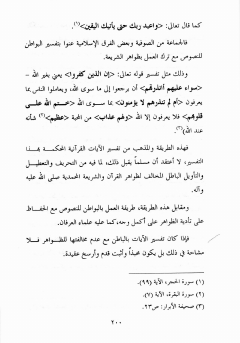 كما قال تعالى: «واعبد ربك حتى يأتيك اليقين»(١).
فالجماعة من الصوفية وبعض الفرق الإسلامية عنوا بتفسير البواطن
للنصوص مع ترك العمل بظواهر الشريعة.
وذلك مثل تفسير قوله تعالى: «إن الذين كفروا» يعني بغير الله -
«سواء عليهم أأنذرتهم» أن يرجعوا إلى ما سترته، ويعاملوا الناس بما
يعرفون «أم لم تنذرهم لا يؤمنون» بما سوى الله «ختم الله على
قلوبهم» فلا يعرفون إلا الله «ولهم عذاب» من المحبة «عظيم»(٢) شأنه
عند الله)(٣).
فهذه الطريقة والمذهب من تفسير الآيات القرآنية الحكمة بهذا
التفسير، لا أعتقد أن مسلماً يقبل ذلك، لما فيه من التحريف والتعطيل
والتأويل الباطل المخالف لظواهر القرآن والشريعة المحمدية صلى الله عليه
وآله.
ومقابل هذه الطريقة، طريقة العمل بالبواطن للنصوص مع الحفاظ
على تأدية الظواهر على أكمل وجه، كما عليه علماء العرفان.
فإذا كان تفسير الآيات بالباطن مع عدم مخالفتها للظواهر فلا
مشاحة في ذلك بل يكون محبذاً وأثبت قدم وأرسخ عقيدة.
(١) سورة الحجر، الآية (٩٩).
(٢) سورة البقرة، الآية (٧).
(٣) صحيفة الأبرار: ص٢٣.
٢٠٠